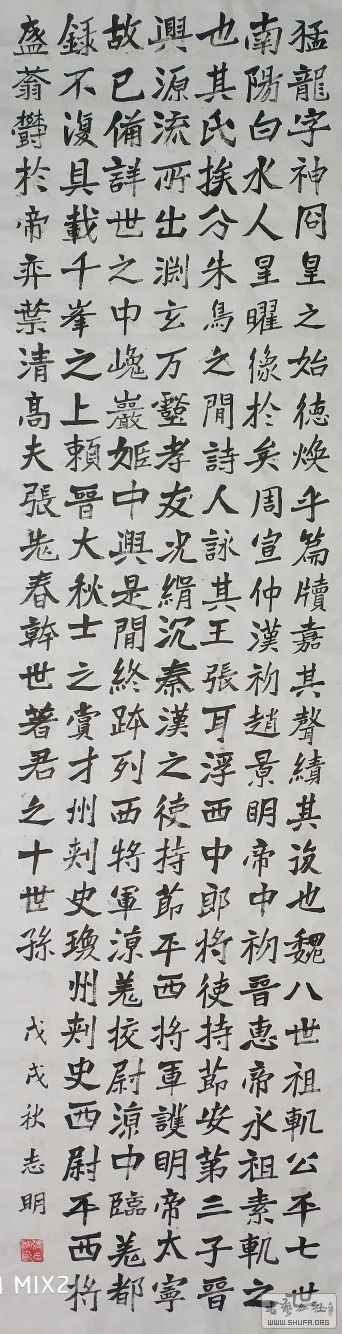 猛龍字神冏皇之始德煥乎篇牘嘉其聲績其後也魏八世祖軌公平七世
南陽白水人星曜像於矣周宣仲漢初趙景明帝中初晉惠帝永祖素軌之
也其氏挨分朱鳥之間詩人詠其王張耳浮西中郎將使持節安第三子晉
興源流所出淵玄万壑孝友光緝沉秦漢之使持節平西將軍護明帝太寧
故已備詳世之中巉巖姬中興是間終跡列西將軍涼羌校尉涼中臨羌都
録不復具載千峯之上賴晉大秋士之賞才州刾史瓊州刾史西尉平西將
盛蓊欝於帝弈葉清高夫張老春幹世著君之十世孫
戊戌秋志明
MIX2
WWW.SHUFA.ORG